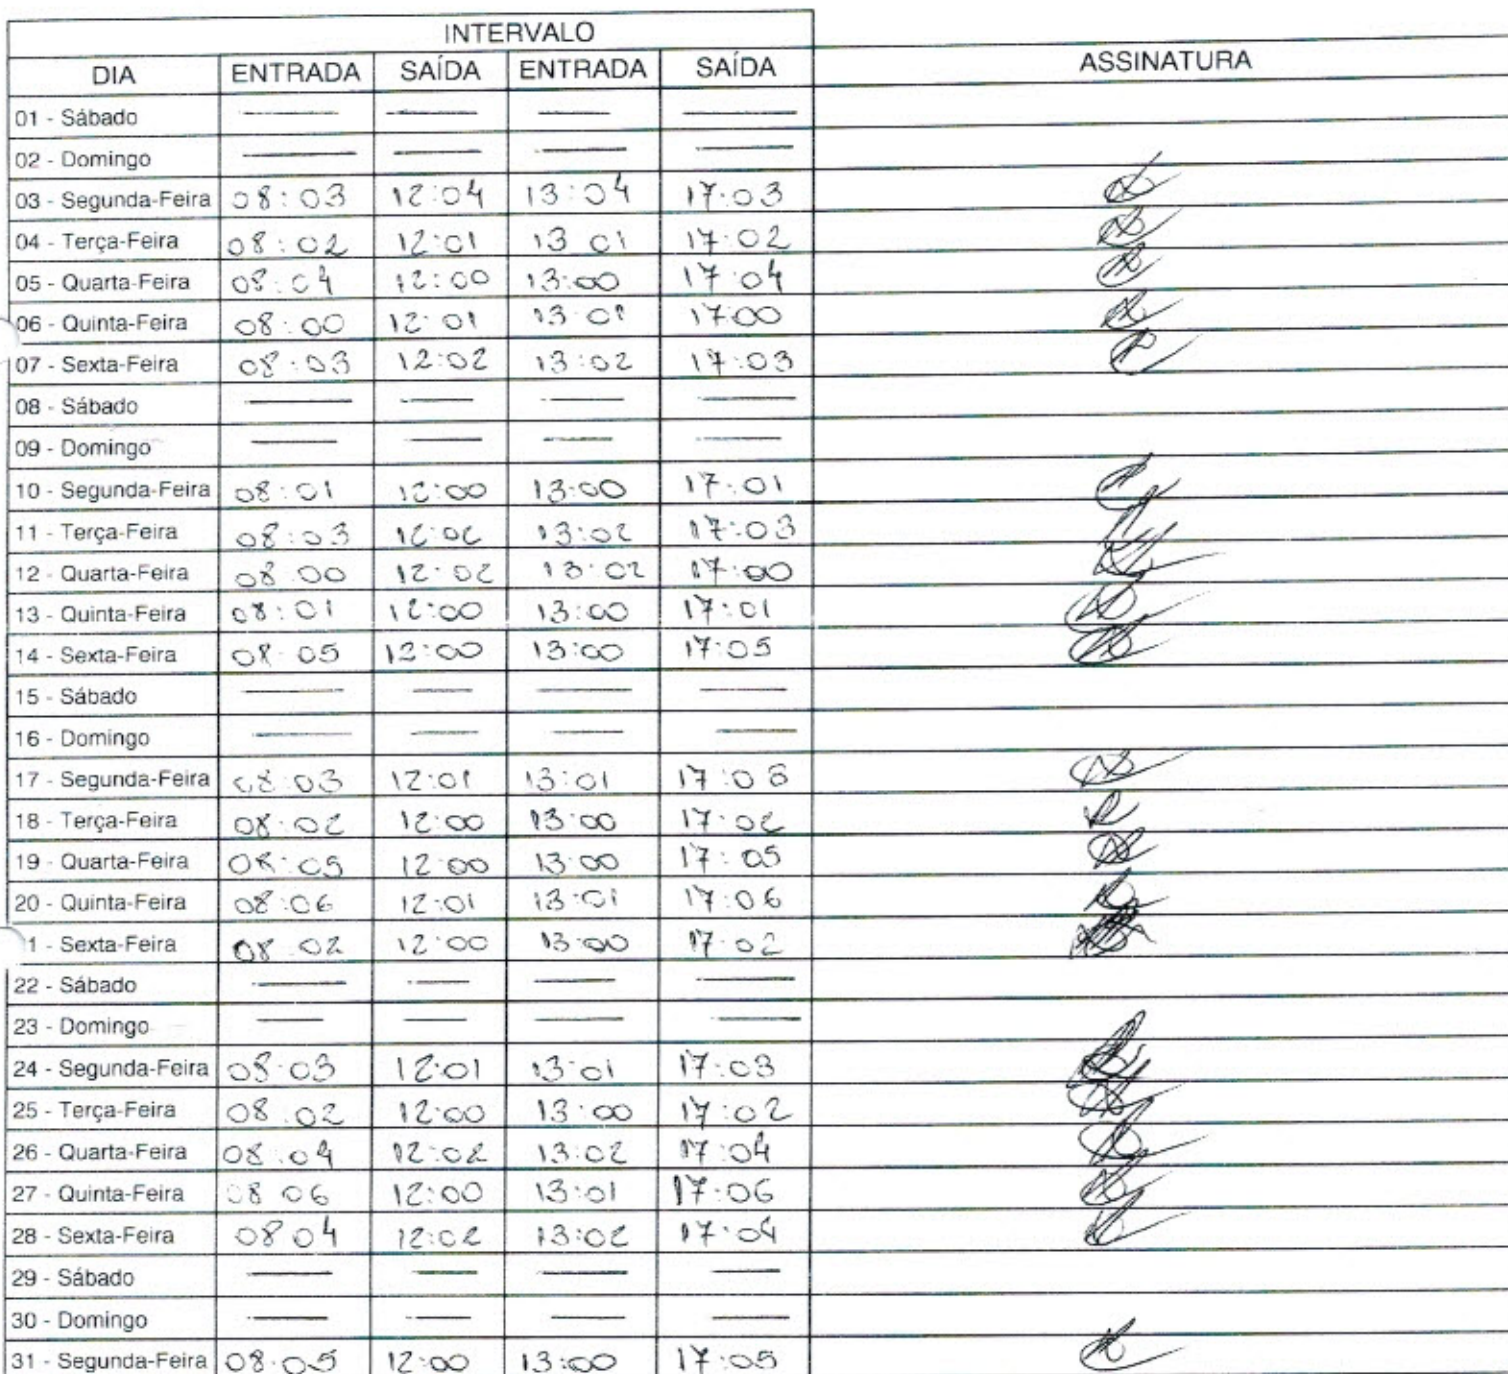 INTERVALO
DIA ENTRADA SAÍDA ENTRADA SAÍDA ASSINATURA
01 - Sábado
02 - Domingo
03 - Segunda-Feira 08:03 12:04 13:04 17:03
04 - Terça-Feira 08:02 12:01 13 01 17:02
05 - Quarta-Feira 08:04 12:00 13:00 17:04
06 - Quinta-Feira 08:00 12:01 13:01 17:00
07 - Sexta-Feira 08:03 12:02 13:02 17:03
08 - Sábado
09 - Domingo
10 - Segunda-Feira 08:01 12:00 13:00 17:01
11 - Terça-Feira 08:03 12:02 13:02 17:03
12 - Quarta-Feira 08:00 12:02 13:02 17:00
13 - Quinta-Feira 08:01 12:00 13:00 17:01
14 - Sexta-Feira 08:05 12:00 13:00 17:05
15 - Sábado
16 - Domingo
17 - Segunda-Feira 08:03 12:01 13:01
18 - Terça-Feira 08:02 12:00 13:00 17:02
19 - Quarta-Feira 08:05 12:00 13:00 17:05
20 - Quinta-Feira 08:06 12:01 13:01 17:06
1 - Sexta-Feira 08:02 12:00 13:00 17:02
22 - Sábado
23 - Domingo
24 - Segunda-Feira 08:03 12:01 13:01 17:03
25 - Terça-Feira 08:02 12:00 13:00 17:02
26 - Quarta-Feira 08:04 12:02 13:02 17:04
27 - Quinta-Feira 08 06 12:00 13:01 17:06
28 - Sexta-Feira 08 04 12:02 13:02 17:04
29 - Sábado
30 - Domingo
31 - Segunda-Feira 08:05 12:00 13:00 17:05